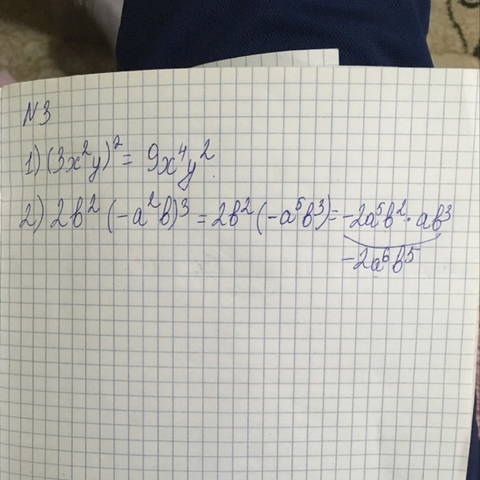 N3
1) (3x²y)² = 9x⁴y²
2) 2b² (-a²b)³ = 2b² (-a⁵b³) = -2a⁵b² · ab³
-2a⁶b⁵